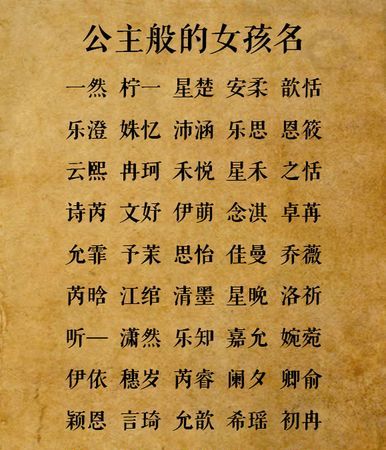 公主般的女孩名
一然 柠一 星楚 安柔 歆恬
乐澄 姝忆 沛涵 乐思 恩筱
云熙 冉珂 禾悦 星禾 之恬
诗芮 文妤 伊萌 念淇 卓苒
允霏 子茉 思怡 佳曼 乔薇
芮晗 江绾 清墨 星晚 洛祈
听一 潇然 乐知 嘉允 婉菀
伊依 穗岁 芮睿 阑夕 卿俞
颖恩 言琦 允歆 希瑶 初冉